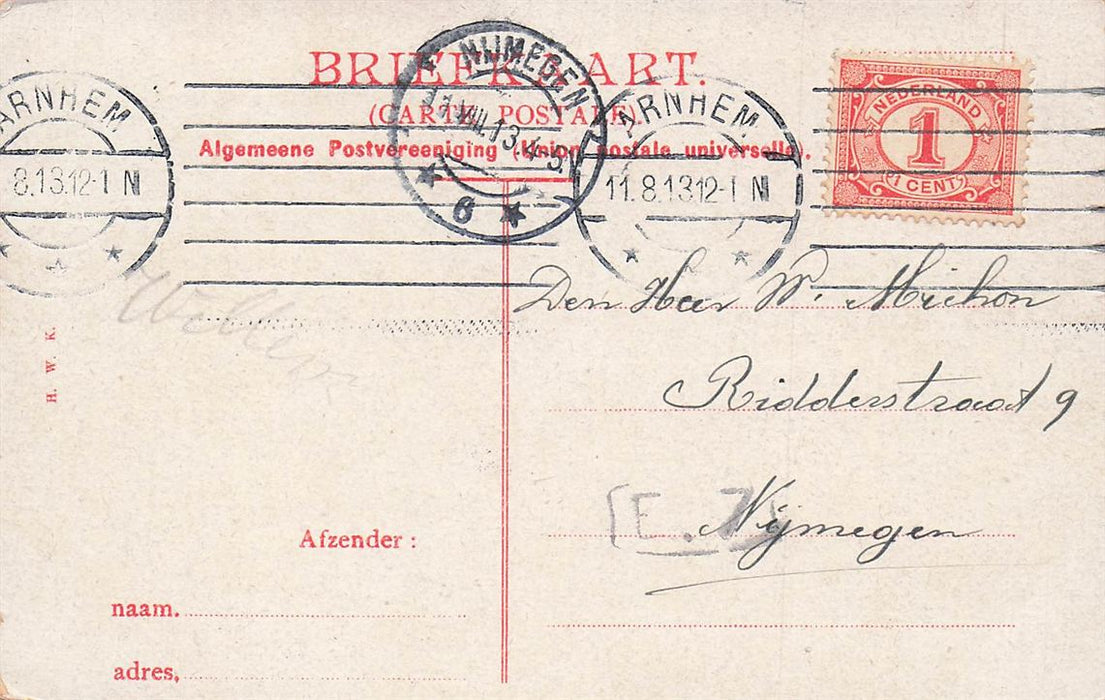 BRIEFKAART.
(CARTE POSTALE).
Algemeene Postvereeniging (Union postale universelle).
ARNHEM
8.13.12-1 N
NIJMEGEN
11.VIII.13.4-5
6
ARNHEM
11.8.13.12-1 N
NEDERLAND
1
(1 CENT)
Den Heer W. Michon
Ridderstraat 9
Nijmegen
H. W. K.
Afzender :
naam.
adres,